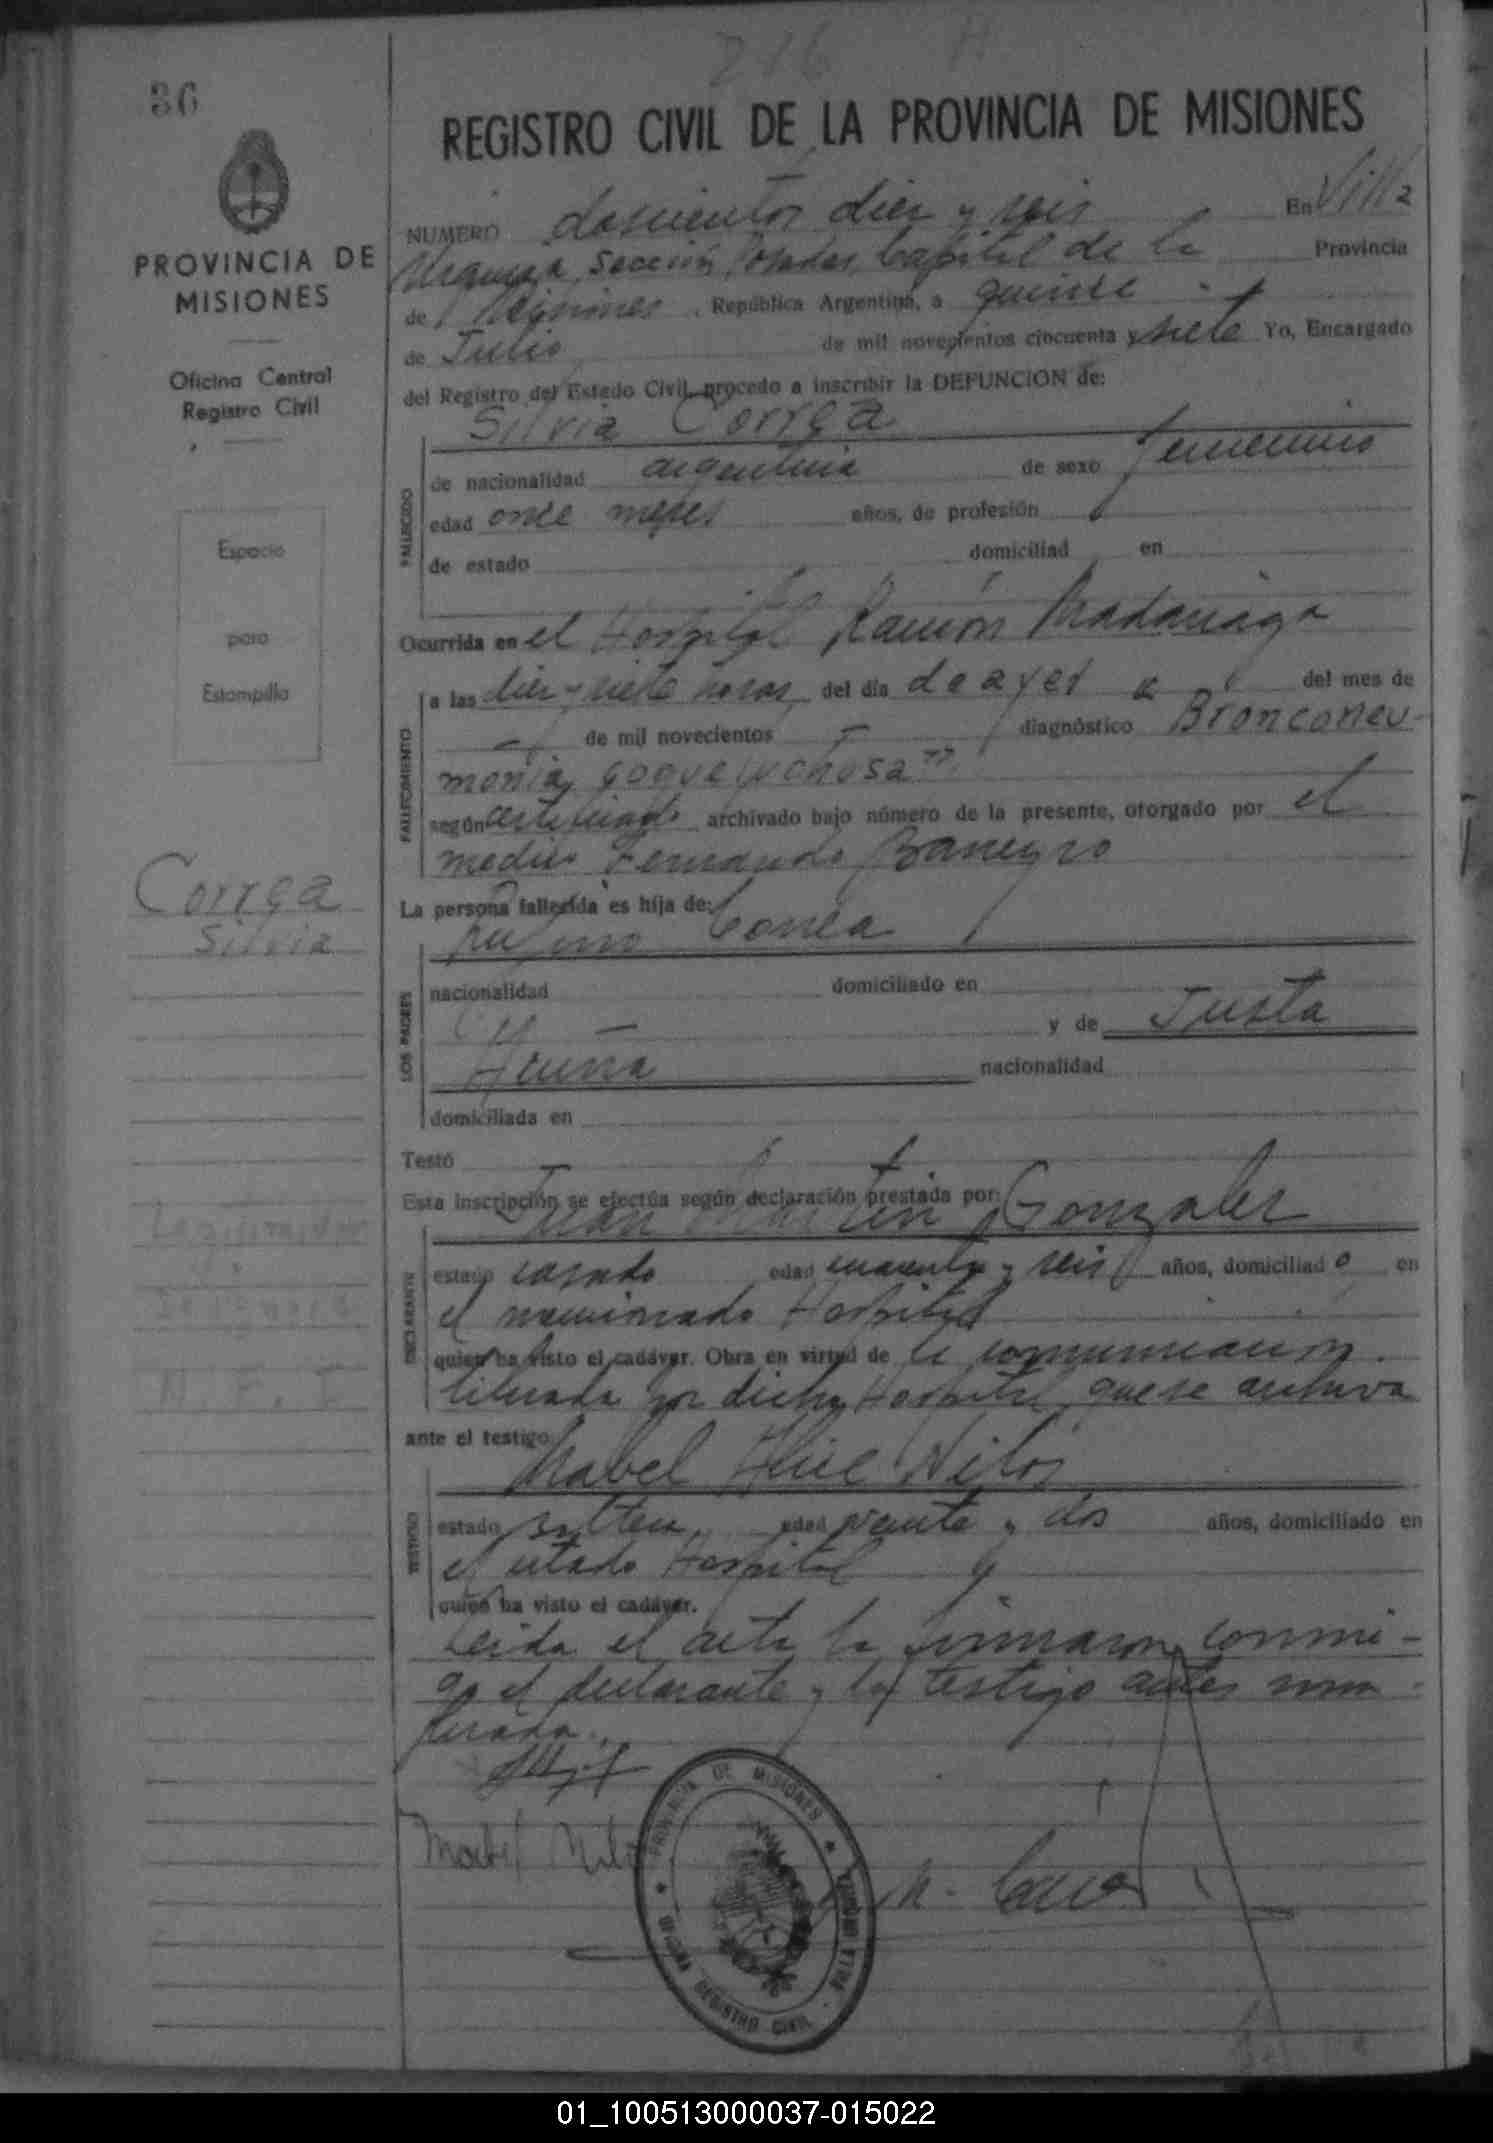 216 H
36
REGISTRO CIVIL DE LA PROVINCIA DE MISIONES
PROVINCIA DE
MISIONES
Oficina Central
Registro Civil
Espacio
para
Estampilla
Correa
Silvia
NUMERO doscientos diez y seis En Villa
Urquiza, Sección Posadas, Capital de la Provincia
de Misiones, República Argentina, a quince
de Julio de mil novecientos cincuenta y siete Yo, Encargado
del Registro del Estado Civil, procedo a inscribir la DEFUNCION de:
Silvia Correa
FALLECIDO
de nacionalidad argentina de sexo femenino
edad once meses años, de profesión
de estado domiciliad en
Ocurrida en el Hospital Ramón Madariaga
FALLECIMIENTO
a las diez y siete horas del día de ayer del mes de
— de mil novecientos — diagnóstico Bronconeu-
monia coqueluchosa"
según certificado archivado bajo número de la presente, otorgado por el
medico Fernando
La persona fallecida es hija de:
Rufino Correa
LOS PADRES
nacionalidad domiciliado en
y de Justa
Acuña nacionalidad
domiciliada en
Testó
Esta inscripción se efectúa según declaración prestada por:
Juan Martin Gonzalez
DECLARANTE
estado casado edad cuarenta y seis años, domiciliado en
el mencionado Hospital
quien ha visto el cadáver. Obra en virtud de la comunicacion
librada por dicho Hospital que se archiva
ante el testigo:
Mabel Alice Nilos
TESTIGO
estado soltera, edad veinte y dos años, domiciliado en
el citado Hospital y
quien ha visto el cadáver.
Leida el acta la firmaron conmi-
go el declarante y la testigo antes nom-
brada.
Mabel
PROVINCIA DE MISIONES
OFICINA REGISTRO CIVIL
VILLA URQUIZA
01_100513000037-015022